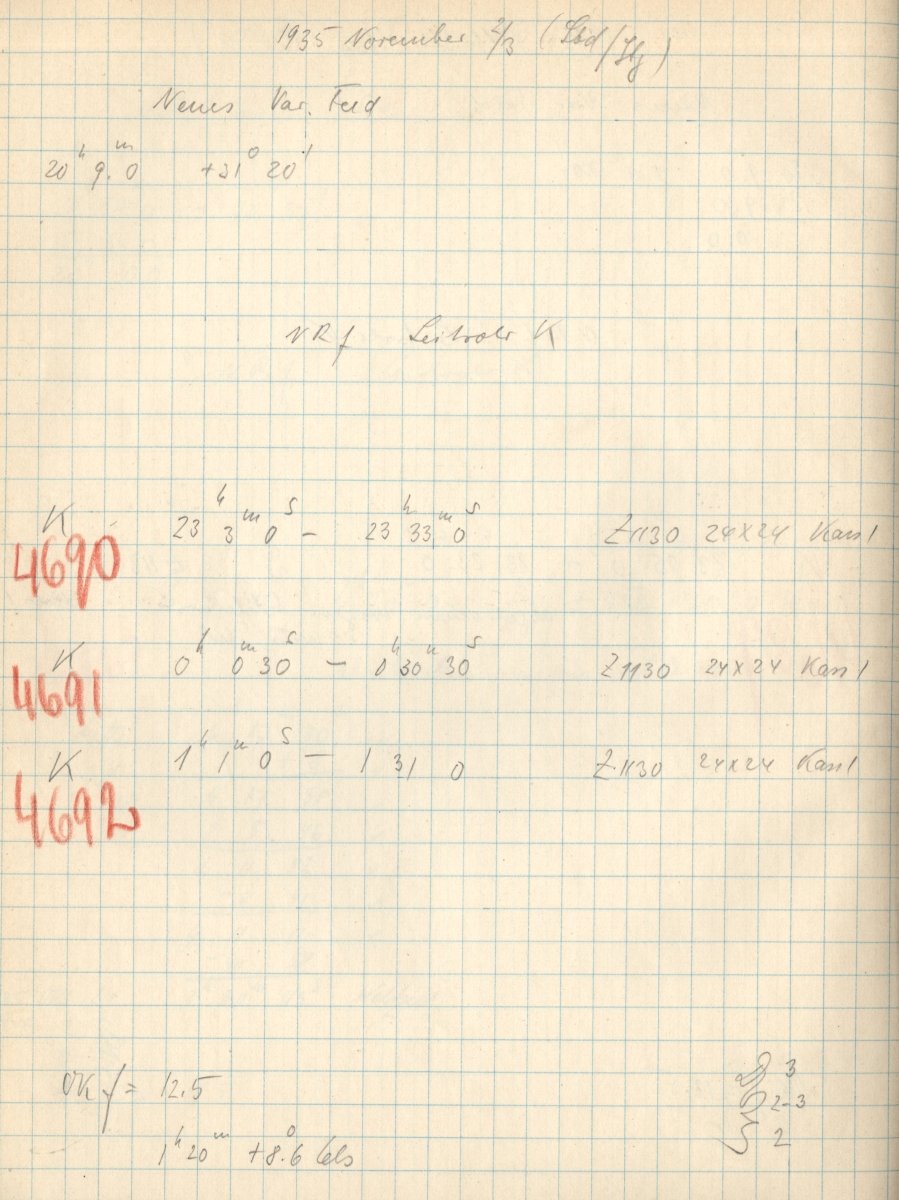 1935 November 2/3 (Sbd/Stg)
Neues Var. Feld
20ʰ 9.ᵐ0 +21° 20'
VR f Leitrohr K
K 23ʰ 3ᵐ 0ˢ – 23ʰ 33ᵐ 0ˢ Z1130 24x24 Kass 1
4690
K 0ʰ 0ᵐ 30ˢ – 0ʰ 30ᵐ 30ˢ Z1130 24x24 Kass 1
4691
K 1ʰ 1ᵐ 0ˢ – 1 31 0 Z.1130 24x24 Kass 1
4692
f = 12.5
1ʰ 20ᵐ +8.°6 Cels
3
2-3
2